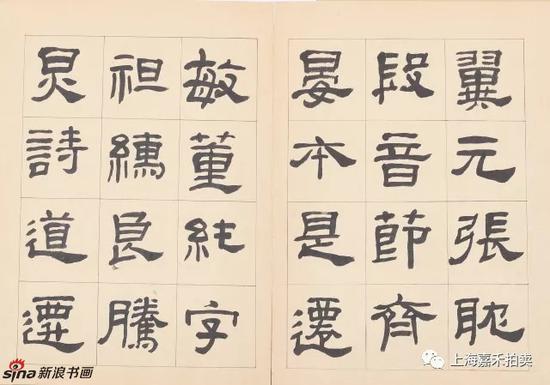 翼元張耽
段音節齊
晏本是還
敏董純字
良騰
炅詩道遷
sina新浪书画
上海嘉禾拍卖